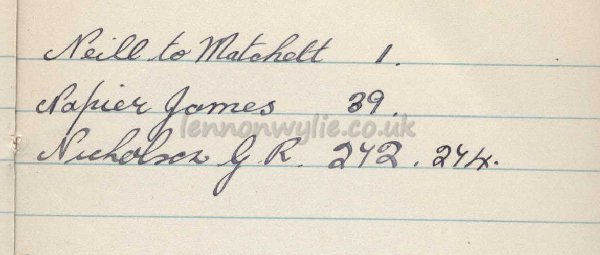 Neill to Matchett 1.
Napier James 39.
lennonwylie.co.uk
Nicholson G R. 242. 274.